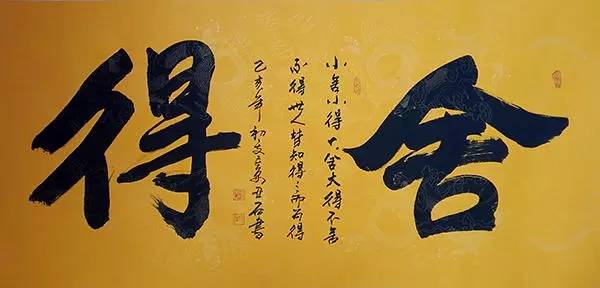 舍
小舍小得大舍大得不舍
不得世人皆知得而得
己亥年初丑石書
得